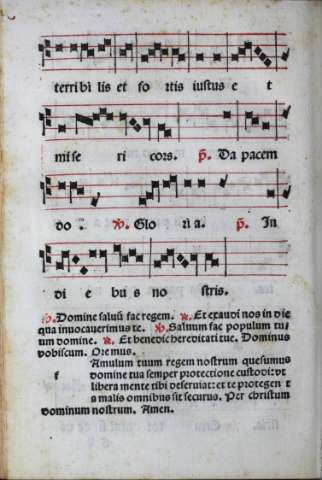 terribi lis et fo rtis iustus e t
mise ri cors. p̄. Da pacem
do . ℣. Glo ria. p̄. In
di e bus no stris.
℣. Domine saluū fac regem. ℟. Et exaudi nos in die
qua inuocauerimus te. ℣. Saluum fac populum tu
um domine. ℟. Et benedic hereditati tue. Dominus
vobiscum. Oremus.
f Amulum tuum regem nostrum quesumus
domine tua semper protectione custodi: vt
libera mente tibi deseruiat: et te protegen t
s malis omnibus sit securus. Per christum
dominum nostrum. Amen.